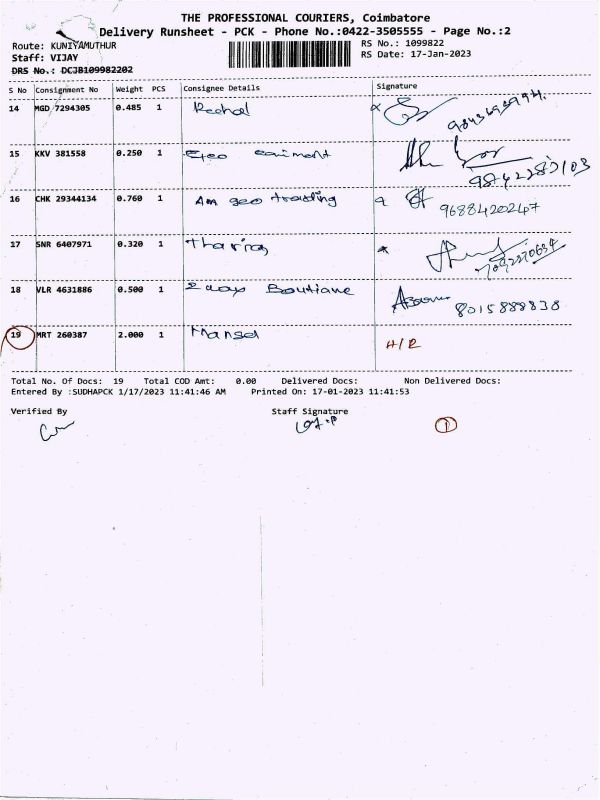 THE PROFESSIONAL COURIERS, Coimbatore
Delivery Runsheet - PCK - Phone No.:0422-3505555 - Page No.:2
Route: KUNIYAMUTHUR
RS No.: 1099822
Staff: VIJAY
RS Date: 17-Jan-2023
DRS No.: DCJB109982202
S No Consignment No Weight PCS Consignee Details Signature
14 MGD 7294305 0.485 1
15 KKV 381558 0.250 1 Geo
16 CHK 29344134 0.760 1 Am geo trading 9688420247
17 SNR 6407971 0.320 1
18 VLR 4631886 0.500 1 2 days Boutique 8015888838
19 MRT 260387 2.000 1 H/R
Total No. Of Docs: 19 Total COD Amt: 0.00 Delivered Docs: Non Delivered Docs:
Entered By :SUDHAPCK 1/17/2023 11:41:46 AM Printed On: 17-01-2023 11:41:53
Verified By Staff Signature
1